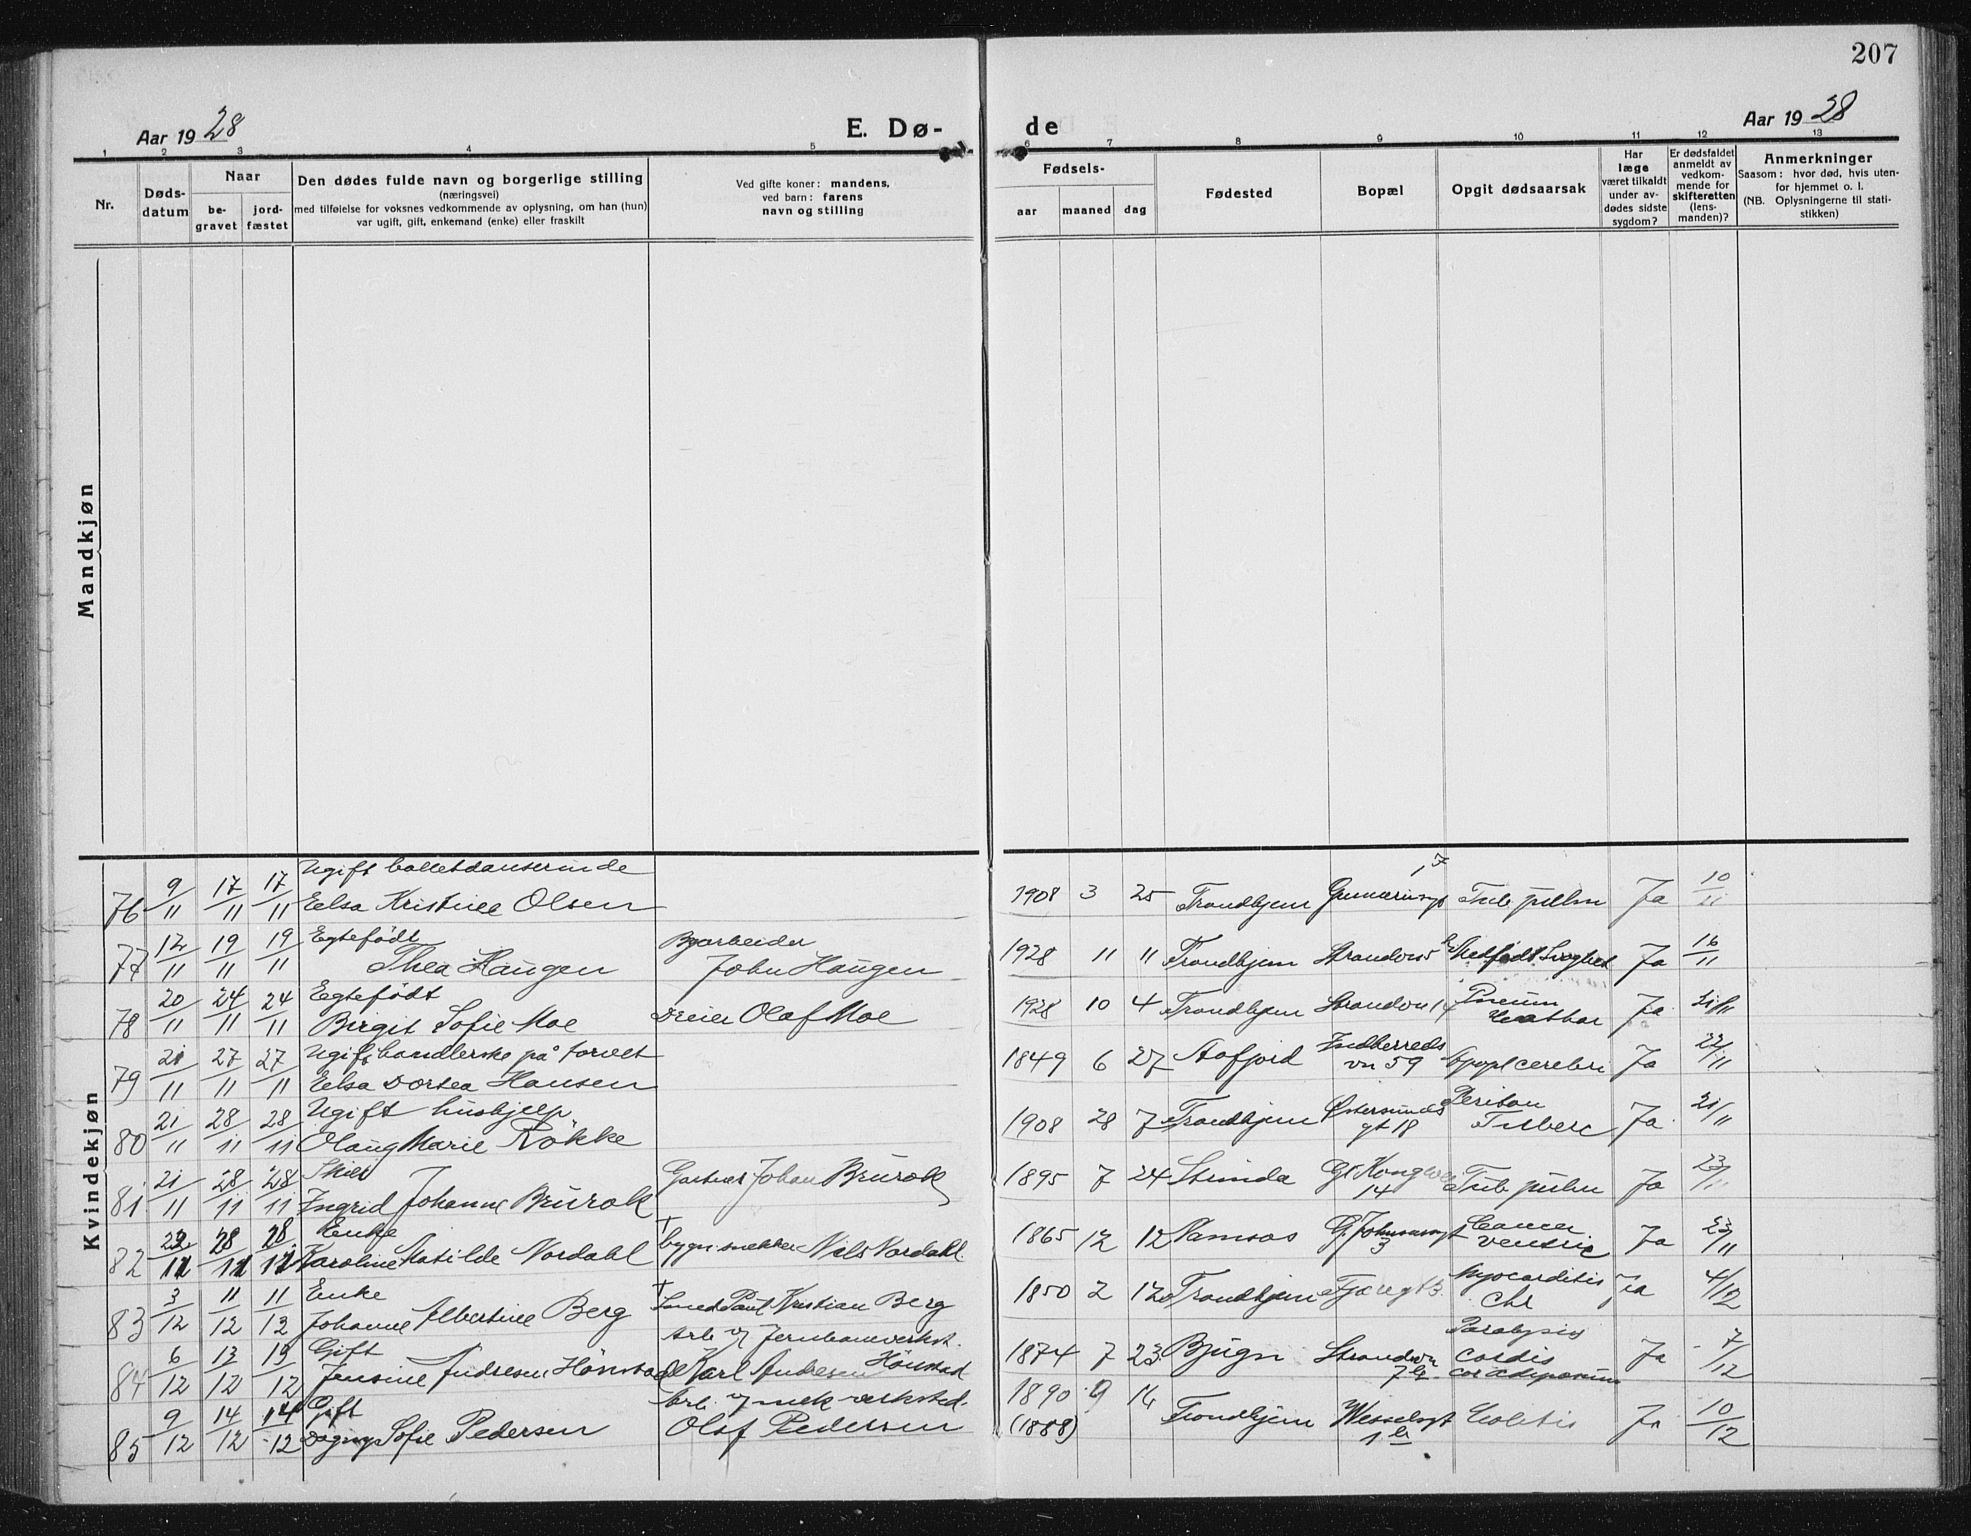 207
Aar 1928
E. Dø-
de
Aar 1928
1 2 3 4 5 6 7 8 9 10 11 12 13
Nr.
Døds-
datum
Naar
be-
gravet
jord-
fæstet
Den dødes fulde navn og borgerlige stilling
(næringsvei)
med tilføielse for voksnes vedkommende av oplysning, om han (hun)
var ugift, gift, enkemand (enke) eller fraskilt
Ved gifte koner: mandens,
ved barn: farens
navn og stilling
Fødsels-
aar maaned dag
Fødested
Bopæl
Opgit dødsaarsak
Har
læge
været tilkaldt
under av-
dødes sidste
sygdom?
Er dødsfaldet
anmeldt av
vedkom-
mende for
skifteretten
(lens-
manden)?
Anmerkninger
Saasom: hvor død, hvis uten-
for hjemmet o. l.
(NB. Oplysningerne til stati-
stikken)
Mandkjøn
Kvindekjøn
Ugift balletdanserinde
76 9/11 17/11 17/11 Elsa Kristine Olsen 1908 3 25 Trondhjem Gunnerusgt 7 Tub pulm Ja 10/11
Egtefödt Byarbeider
77 12/11 19/11 19/11 Thea Haugen John Haugen 1928 11 11 Trondhjem Medfödt Svaghet Ja 16/11
Egtefödt
78 20/11 24/11 24/11 Birgit Sofie Moe Dreier Olaf Moe 1928 10 4 Trondhjem Strandvn 14 Pneum Ja 21/11
Ugift handlerske på torvet
79 21/11 27/11 27/11 Elsa Dortea Hansen 1849 6 27 Aafjord Indherreds
vn 59 Apopl cerebri Ja 22/11
Ugift hushjelp
80 21/11 28/11 28/11 Olaug Marie Rökke 1908 28 7 Trondhjem Östersunds
gt 18 Periton
Tuberc Ja 21/11
Skilt
81 21/11 28/11 28/11 Ingrid Johanne Brurok Gartner Johan Brurok 1895 7 24 Strinda Gl Kongevei
14 Tub pulm Ja 23/11
Enke
82 22/11 28/11 28/11 Karoline Matilde Nordahl † bygn.snekker Nils Nordahl 1865 12 12 Namsos 3 Cancer
ventric Ja 23/11
Enke
83 3/12 11/12 11/12 Johanne Albertine Berg † Smed Paul Kristian Berg 1850 2 12 Trondhjem Fjæregt 3 Myocarditis
chr Ja 4/12
Gift Arb. v/ Jernbaneverkst.
84 6/12 13/12 13/12 Jensine Andresen Hönstad Karl Andresen Hönstad 1874 7 23 Bjugn Strandvn
7 b Paralysis
cordis
cor adiposum Ja 7/12
Gift Arb. v/ mek verksted.
85 9/12 14/12 14/12 Dagny Sofie Pedersen Olaf Pedersen 1890 9 16
(1888) Trondhjem Wesselsgt
1 b Colitis Ja 10/12